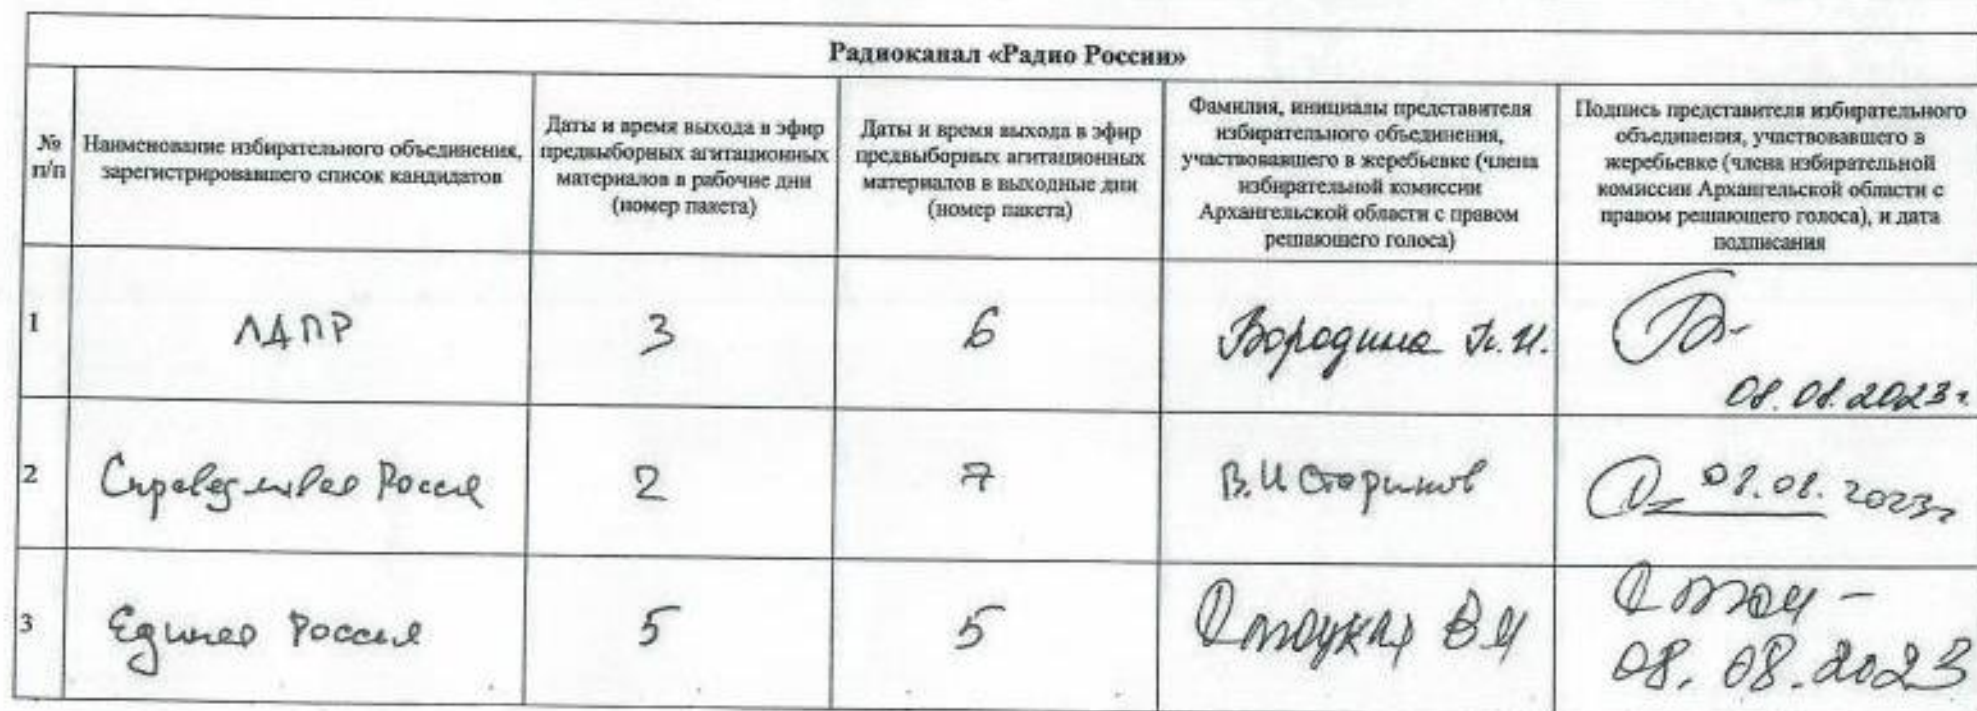 Радиоканал «Радио России»
№
п/п
Наименование избирательного объединения,
зарегистрировавшего список кандидатов
Даты и время выхода в эфир
предвыборных агитационных
материалов в рабочие дни
(номер пакета)
Даты и время выхода в эфир
предвыборных агитационных
материалов в выходные дни
(номер пакета)
Фамилия, инициалы представителя
избирательного объединения,
участвовавшего в жеребьевке (члена
избирательной комиссии
Архангельской области с правом
решающего голоса)
Подпись представителя избирательного
объединения, участвовавшего в
жеребьевке (члена избирательной
комиссии Архангельской области с
правом решающего голоса), и дата
подписания
1
ЛДПР
3
6
Бородина
08.08.2023г
2
Справедливая Россия
2
7
В.И
08.08.2023г
3
Единая Россия
5
5
08.08.2023